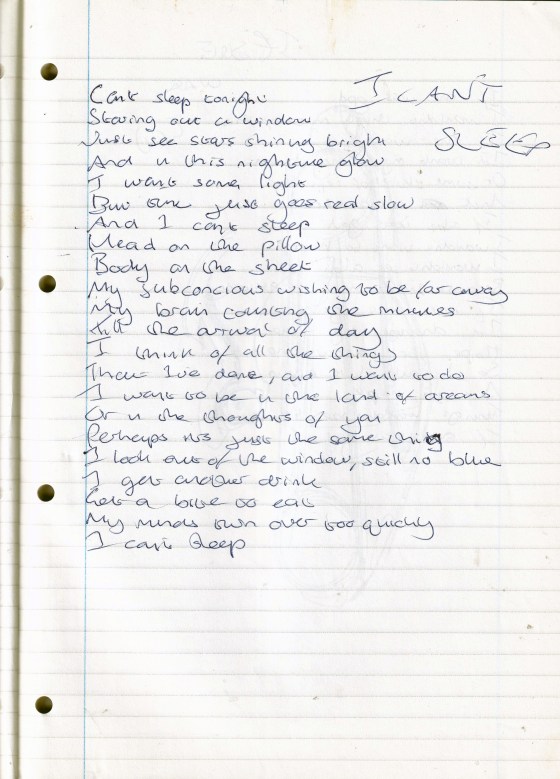 I CANT
SLEEP
Cant sleep tonight
Staring out a window
Just see stars shining bright
And in this nightime glow
I want some light
But time just goes real slow
And I cant sleep
Head on the pillow
Body on the sheet
My subconcious wishing to be far away
My brain counting the minutes
till the arrival of day
I think of all the things
That I've done, and I want to do
I want to be in the land of dreams
Or in the thoughts of you
Perhaps its just the same thing
I look out of the window, still no blue
I get another drink
Get a bite to eat
My minds turn over too quickly
I cant sleep